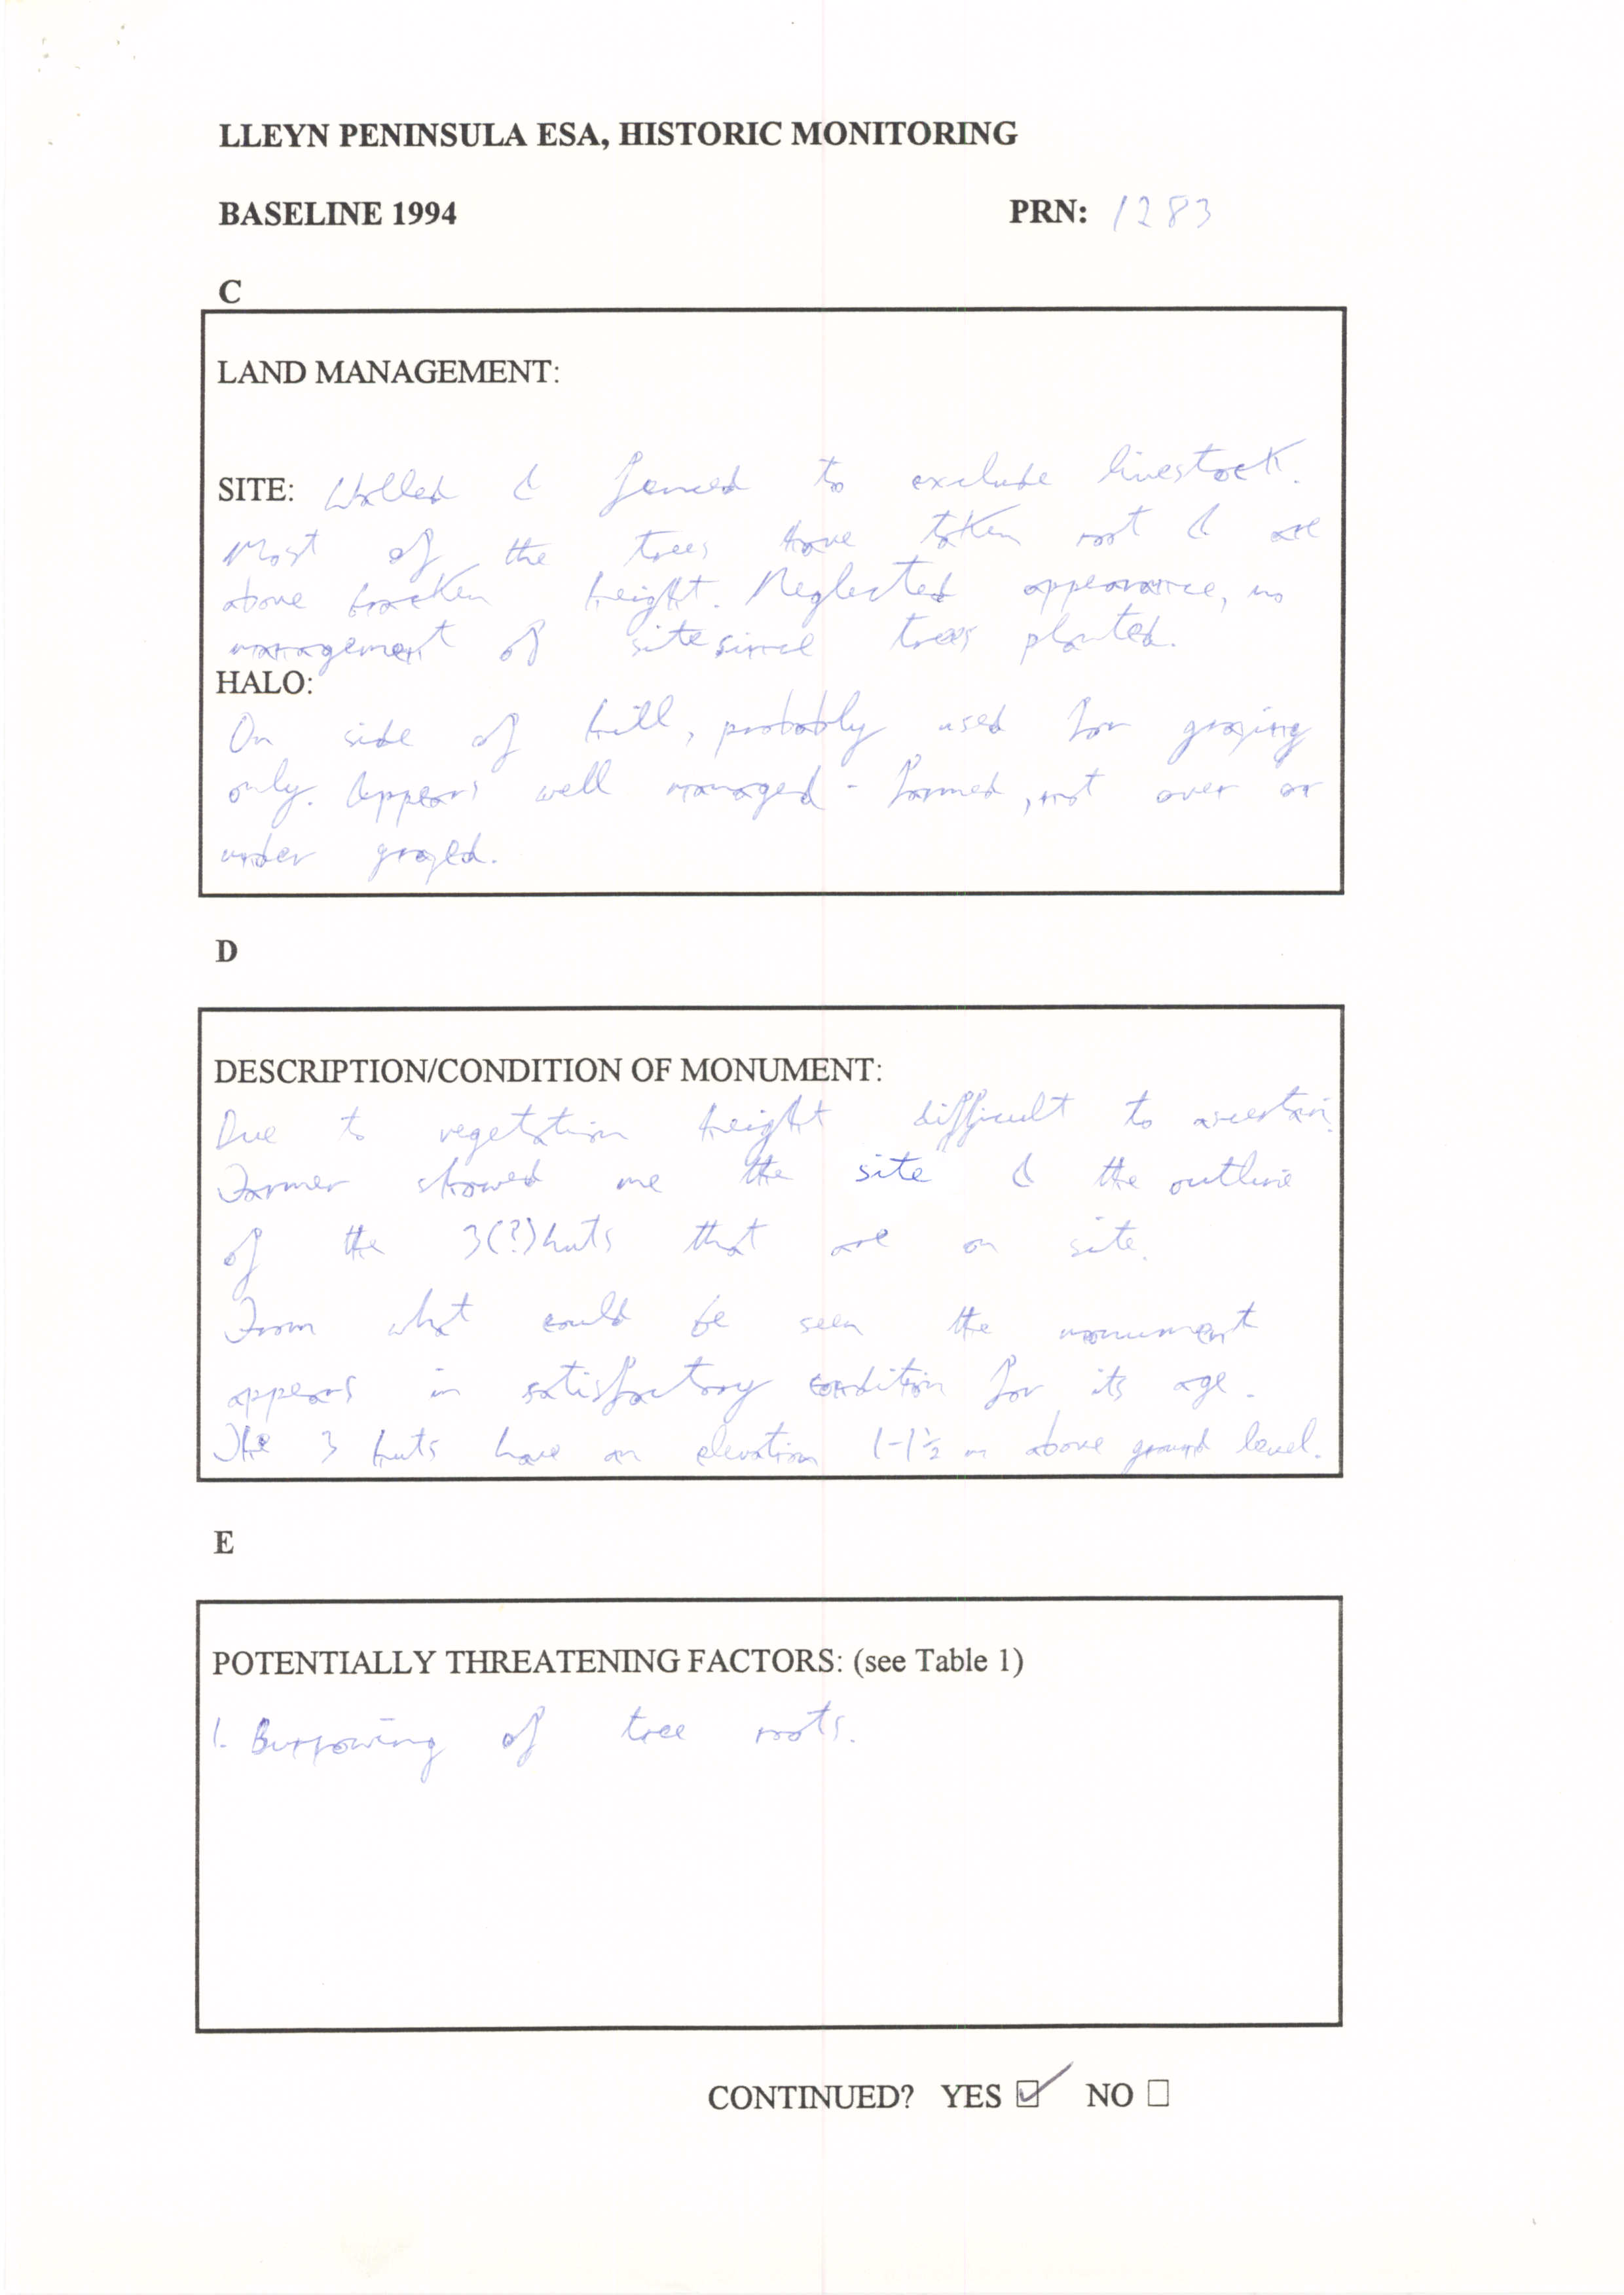 LLEYN PENINSULA ESA, HISTORIC MONITORING
BASELINE 1994 PRN: 1283
C
LAND MANAGEMENT:
SITE: Walled & fenced to exclude livestock.
Most of the trees have taken root & are
above bracken height. Neglected appearance, no
management of site since trees planted.
HALO:
On side of hill, probably used for grazing
only. Appears well managed - farmed, not over or
under grazed.
D
DESCRIPTION/CONDITION OF MONUMENT:
Due to vegetation height difficult to ascertain.
Farmer showed me the site & the outline
of the 3(?) huts that are on site.
From what could be seen the monument
appears in satisfactory condition for its age.
The 3 huts have an elevation 1-1½ m above ground level.
E
POTENTIALLY THREATENING FACTORS: (see Table 1)
1. Burrowing of tree roots.
CONTINUED? YES ☑ NO ☐